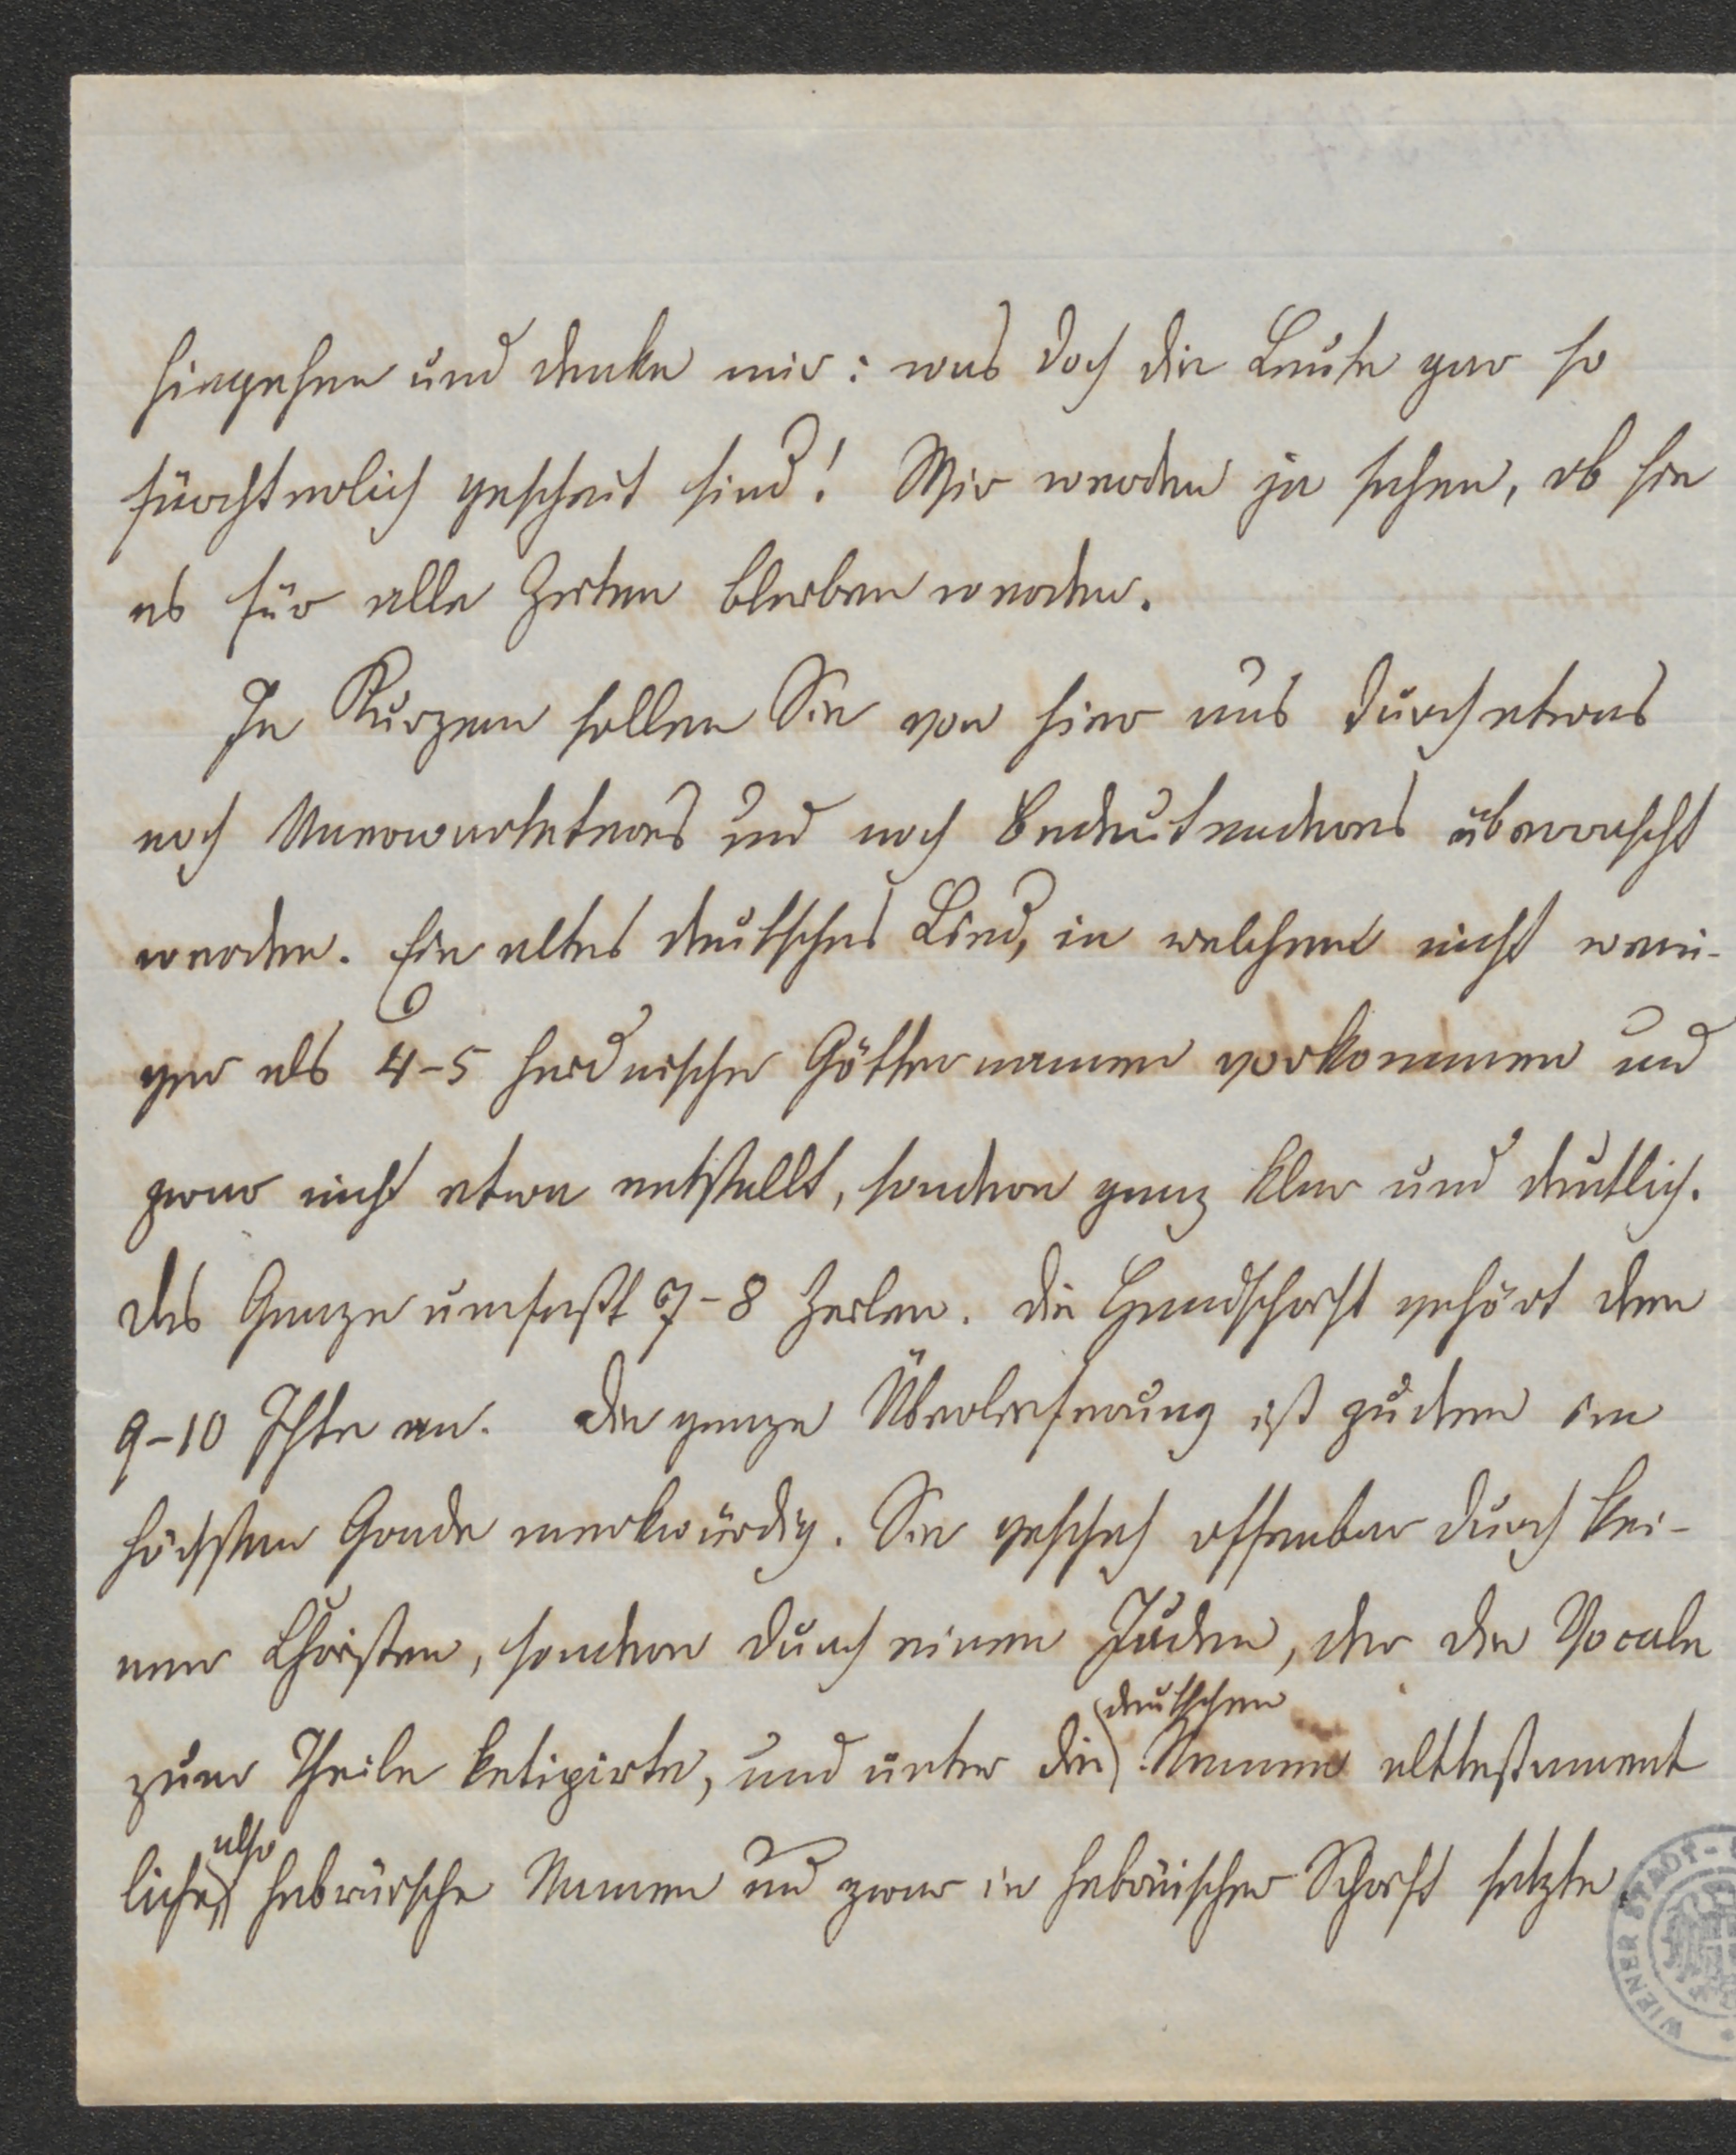 hingehen und denke mir: was doch die Leute gar so
fürchterlich gescheit sind! Wir werden ja sehen, ob sie
es für alle Zeiten bleiben werden.
In Kurzem sollen Sie von hier aus durch etwas
noch Unerwarteteres und noch Bedeutenderes überrascht
werden. Ein altes deutsches Lied, in welchem nicht weni-
ger als 4-5 heidnische Götternamen vorkommen und
zwar nicht etwa entstellt, sondern ganz klar und deutlich.
Das Ganze umfaßt 7-8 Zeilen. Die Handschrift gehört dem
9-10 Jhte an. Die ganze Überlieferung ist zudem im
höchsten Grade merkwürdig. Sie geschah offenbar durch kei-
nen Christen, sondern durch einen Juden, der die Vocale
deutschen
zum Theile ketipirte, und unter die Namen alttestament
also
liche hebräische Namen und zwar in hebräischer Schrift setzte
WIENER STADT-